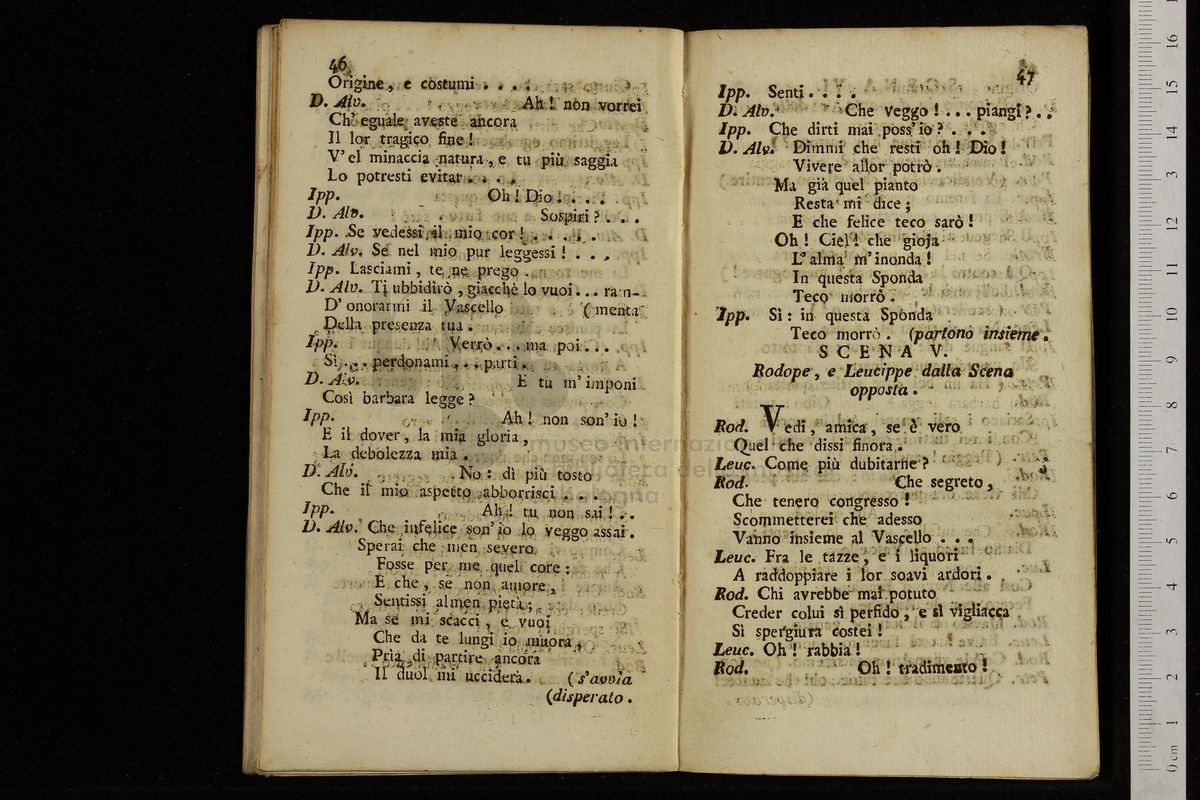 46
Origine, e costumi . . . .
D. Alv. Ah! non vorrei
Ch' eguale aveste ancora
Il lor tragico fine!
V' el minaccia natura, e tu più saggia
Lo potresti evitar. . . .
Ipp. Oh! Dio! . . .
D. Alv. Sospiri? . . .
Ipp. Se vedessi il mio cor! . . . . .
D. Alv. Se nel mio pur leggessi! . . .
Ipp. Lasciami, te ne prego.
D. Alv. Ti ubbidirò, giacchè lo vuoi... ram-
D' onorarmi il Vascello (menta
Della presenza tua.
Ipp. Verrò... ma poi...
Sì... perdonami... parti.
D. Alv. E tu m' imponi
Così barbara legge?
Ipp. Ah! non son' io!
E il dover, la mia gloria,
La debolezza mia.
D. Alv. No: di più tosto
Che il mio aspetto abborrisci . . .
Ipp. Ah! tu non sai! . .
D. Alv. Che infelice son' io lo veggo assai.
Sperai che men severo
Fosse per me quell core:
E che, se non amore,
Sentissi almen pietà;
Ma se mi scacci, e vuoi
Che da te lungi io muora,
Pria di partire ancora
Il duol mi ucciderà. (s'avvia
(disperato.
47
Ipp. Senti. . . .
D. Alv. Che veggo! ... piangi? . .
Ipp. Che dirti mai poss' io? . . .
D. Alv. Dimmi che resti oh! Dio!
Vivere allor potrò.
Ma già quel pianto
Resta mi dice;
E che felice teco sarò!
Oh! Ciel! che gioja
L' alma m' inonda!
In questa Sponda
Teco morrò.
Ipp. Sì: in questa Sponda
Teco morrò. (partono insieme.
SCENA V.
Rodope, e Leucippe dalla Scena
opposta.
Rod. Vedi, amica, se è vero
Quel che dissi finora.
Leuc. Come più dubitarne?
Rod. Che segreto,
Che tenero congresso!
Scommetterei che adesso
Vanno insieme al Vascello . . .
Leuc. Fra le tazze, e i liquori
A raddoppiare i lor soavi ardori.
Rod. Chi avrebbe mai potuto
Creder colui sì perfido, e sì vigliacca
Sì spergiura costei!
Leuc. Oh! rabbia!
Rod. Oh! tradimento!